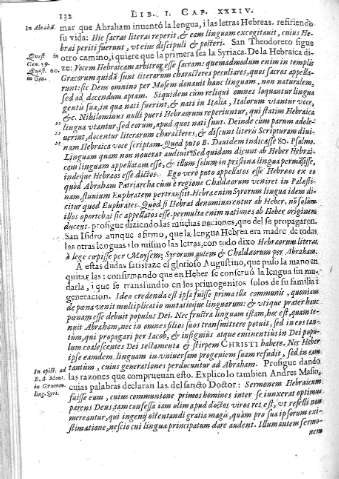 132 LIB. I. CAP. XXXIV.
In Abrahã
mar que Abraham inuentó la lengua, i las letras Hebreas. refiriendo
su vida: Hic sacras literas reperit, & eam linguam excogitauit, cuius He-
brai periti fuerunt, vt eius discipuli & posteri. San Theodoreto sigue
otro camino, quiere que la primera sea la Syriaca. De la Hebrea di-
Quæst.
Gen.
Quæst. 60.
in Gen.
Græcorum quidã sunt literarum characteres peculiares, quos sacros appella-
runt: sic Deum omnino per Mosem donauit hanc linguam, non naturalem,
sed ad docendum aptam. Siquidem cum reliqui omnes loquantur lingua
gentis sua, in qua nati fuerint, & nati in Italia, Italorum vtantur voce,
&c. Nihilominus nulli pueri Hebræorum reperiuntur, qui statim Hebraica
lingua vtantur, sed eorum, apud quos nati sunt. Deinde cum parum adole-
uerint, docentur literarum characteres, & discunt literis Scripturam diui-
nam Hebraica voce scriptam. Quod puto B. Dauidem indicasse 80. Psalmo.
Linguam quam non nouerat audiuit. Sed quidam dicunt ab Heber Hebrai-
cam linguam appellatam esse, & illum solum in pristina lingua permãsisse,
indeque Hebræos esse dictos. Ego verò puto appellatos esse Hebræos ex eo
quòd Abraham Patriarcha cùm è regione Chaldæorum veniret in Palæsti-
nam, fluuium Euphratem pertransijt. Hebraica enim Syrorum lingua idem di-
citur quod Euphrates. Quod si Hebræi denominentur ab Heber, nõ solum
illos oportebat sic appellatos esse. permultæ enim nationes ab Heber originem
ducunt. prosigue diziendo las muchas naciones, que del se propagarõ.
San Isidro aunque afirmo, que la lengua Hebrea era madre de todas
las otras lenguas i lo mismo las letras, con todo dixo Hebræorum literas
à lege cœpisse per Moysem; Syrorum autem & Chaldæorum per Abraham.
A estas dudas satisface el glorioso Augustino, que pudo la mano en
quitarlas: confirmando que en Heber se conseruó la lengua sin mu-
darla, i que se transfundio en los primogenitos solos de su familia i
generacion. Ideo credenda est ipsa fuisse prima illa communis, quoniam
de pœna venit multiplicatio mutatioque linguarum: & vtique præter hanc
pœnam esse debuit populus Dei. Nec frustra linguam istam, hæc est, quam te-
nuit Abraham, nec in omnes filios suos transmittere potuit, sed in eos tan-
tùm, qui propagati per Iacob, & insigniùs atque eminentiùs in Dei popu-
lum coalescentes Dei testamenta & stirpem CHRISTI habere. Nec Heber
ipse eandem, linguam in vniuersam progeniem suam refudit, sed in eam
tantùm, cuius generationes perducuntur ad Abraham. Prosigue dando
las razones que comprueuan esto. Explicolo tambien Andres Masio,
In epist. ad
in Gramm.
ling. Syr.
cuias palabras declaran las del sancto Doctor: Sermonem Hebraicum
fuisse eum, cuius communione primos homines inter se iunxerat optimus
parens Deus, tam confessa iam olim apud doctos viros res est, vt refelli non
mereantur, qui ingenij ostentandi gratia magis, quàm pro sua ipsorum exi-
stimatione, nescio cui lingua principatum dare audent. Illum autem sermo-
nem